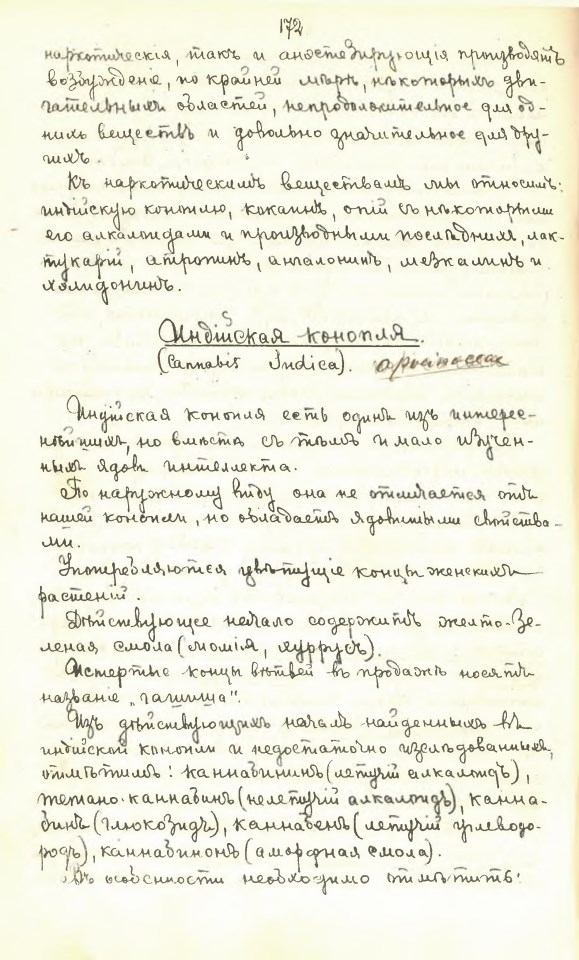 172
наркотическія, такъ и анэстезирующія производятъ
возбужденіе, по крайней мѣрѣ, нѣкоторыхъ дви-
гательныхъ областей, непродолжительное для од-
нихъ веществъ и довольно значительное для дру-
гихъ.
Къ наркотическимъ веществамъ мы относимъ:
индійскую коноплю, кокаинъ, опій съ нѣкоторыми
его алкалоидами и производными послѣднихъ, лак-
тукарій, атропинъ, ангалонинъ, мезкалинъ и
хэлидонинъ.
Индійская конопля.
(Cannabis Indica).
Индійская конопля есть одинъ изъ интерес-
нѣйшихъ, но вмѣстѣ съ тѣмъ и мало изучен-
ныхъ ядовъ интеллекта.
По наружному виду она не отличается отъ
нашей конопли, но обладаетъ ядовитыми свойства-
ми.
Употребляются цвѣтущіе концы женскихъ
растеній.
Дѣйствующее начало содержитъ желто-зе-
леная смола (момія, хуррусъ).
Истертые концы вѣтвей въ продажѣ носятъ
названіе „гашиша".
Изъ дѣйствующихъ началъ найденныхъ въ
индійской конопли и недостаточно изслѣдованныхъ,
отмѣтимъ: каннабининъ (летучій алкалоидъ),
тетано-каннабинъ (нелетучій алкалоидъ), канна-
бинъ (глюкозидъ), каннабенъ (летучій углеводо-
родъ), каннабинонъ (аморфная смола).
Въ особенности необходимо отмѣтить: